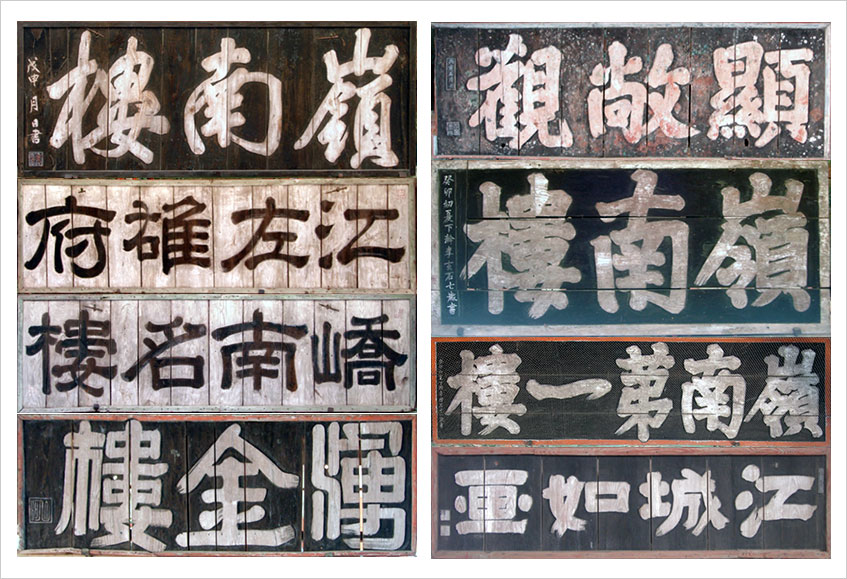 嶺南樓
戊申 月日書
江左雄府
嶠南名樓
湧金樓
顯敞觀
嶺南樓
癸卯初夏下澣李玄石七歲書
嶺南第一樓
江城如画